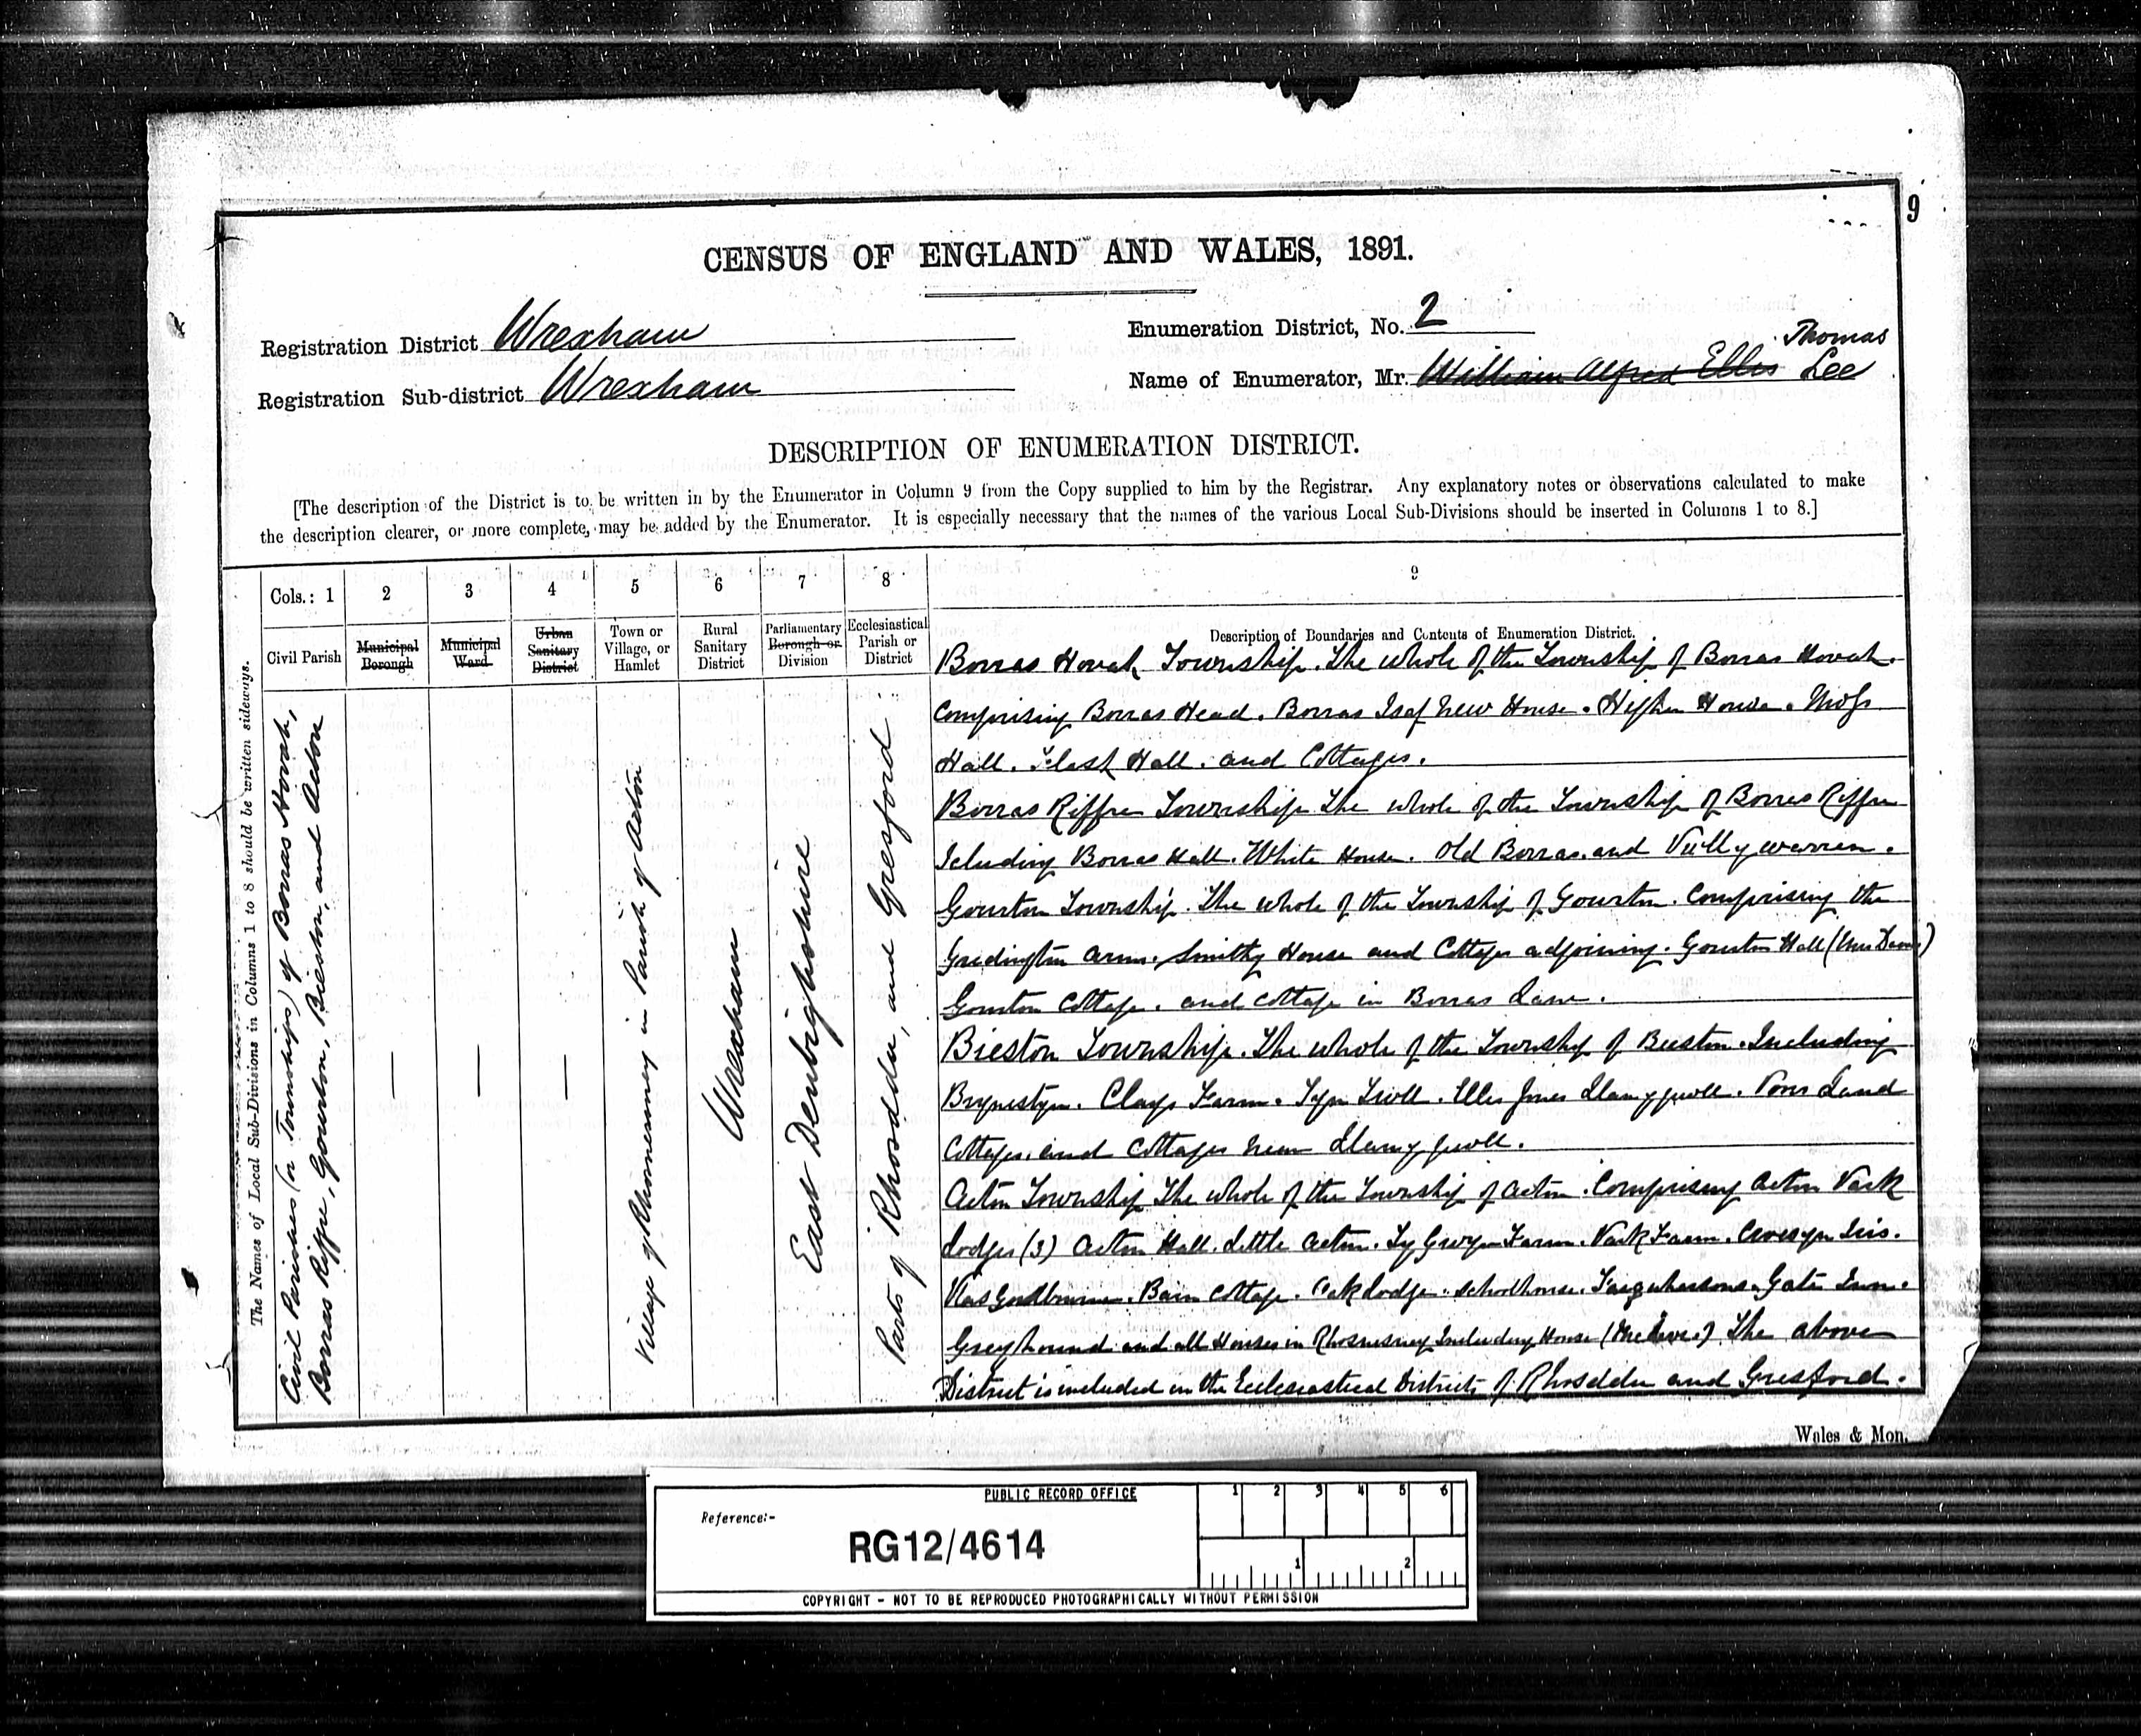 9
CENSUS OF ENGLAND AND WALES, 1891.
Registration District Wrexham
Enumeration District, No. 2
Thomas
Registration Sub-district Wrexham
Name of Enumerator, Mr. William Alfred Ellis Lee
DESCRIPTION OF ENUMERATION DISTRICT.
[The description of the District is to be written in by the Enumerator in Column 9 from the Copy supplied to him by the Registrar. Any explanatory notes or observations calculated to make
the description clearer, or more complete, may be added by the Enumerator. It is especially necessary that the names of the various Local Sub-Divisions should be inserted in Columns 1 to 8.]
The Names of Local Sub-Divisions in Columns 1 to 8 should be written sideways.
Cols.: 1 2 3 4 5 6 7 8 9
Civil Parish
Municipal Borough
Municipal Ward
Urban Sanitary District
Town or Village, or Hamlet
Rural Sanitary District
Parliamentary Borough or Division
Ecclesiastical Parish or District
Description of Boundaries and Contents of Enumeration District.
Civil Parishes (or Townships) of Borras Hovah,
Borras Riffre, Gourton, Bieston, and Acton
—
—
—
Village of Rhosnesney in Parish of Acton
Wrexham
East Denbighshire
Parts of Rhosddu, and Gresford
Borras Hovah Township. The whole of the Township of Borras Hovah.
Comprising Borras Head. Borras Isaf New House. Higher House. Moss
Hall. Flash Hall. and Cottages.
Borras Riffre Township The whole of the Township of Borras Riffre
Icluding Borras Hall. White House. Old Borras. and
Gourton Township. The whole of the Township of Gourton. Comprising the
Gredington Arms. Smithy House and Cottages adjoining. Gourton Hall (
Gourton Cottage. and Cottage in Borras Lane.
Bieston Township. The whole of the Township of Bieston. Including
Brynestyn. Clays Farm. Tyn Twll. Ellis Jones Llanypwll. Poors Land
Cottages. and Cottages near Llanypwll.
Acton Township The whole of the Township of Acton. Comprising Acton Park
Lodges (3) Acton Hall. Little Acton. Ty Gwyn Farm. Park Farm. Croesyn
Plas Goulbourne. Barn Cottage. Oak Lodge. Schoolhouse. Farquharsons. Gate Inn.
Greyhound and all Houses in Rhosnesney Including House The above
District is included in the Ecclesiastical Districts of Rhosddu and Gresford.
Wales & Mon.
PUBLIC RECORD OFFICE
1 2 3 4 5 6
Reference:-
RG12/4614
1 2
COPYRIGHT - NOT TO BE REPRODUCED PHOTOGRAPHICALLY WITHOUT PERMISSION